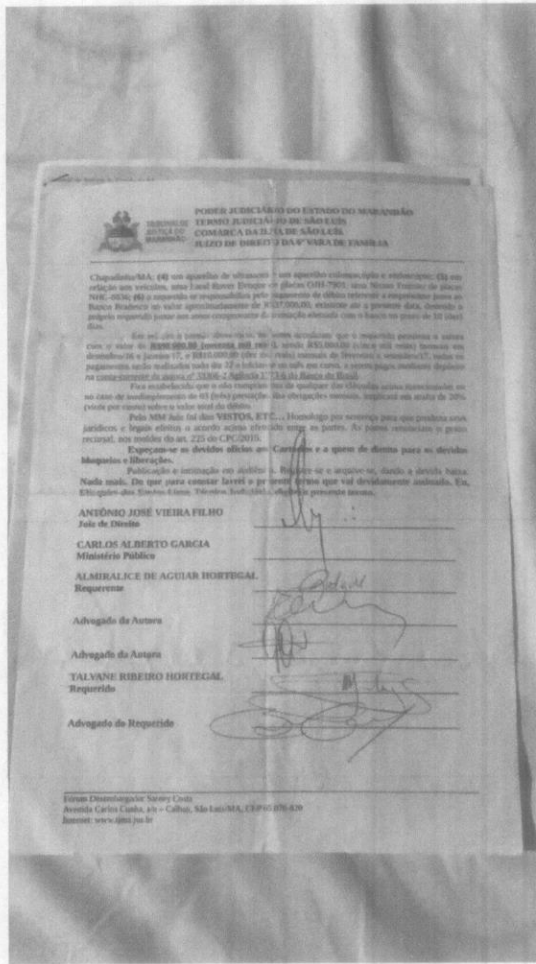 TRIBUNAL DE
JUSTIÇA DO
MARANHÃO
PODER JUDICIÁRIO DO ESTADO DO MARANHÃO
TERMO JUDICIÁRIO DE SÃO LUÍS
COMARCA DA ILHA DE SÃO LUÍS
JUÍZO DE DIREITO DA 6ª VARA DE FAMÍLIA
Chapadinha/MA; (4) um aparelho de ultrassom e um aparelho colonoscópio e endoscópio; (5) em
relação aos veículos, uma Land Rover Evoque de placas OJH-7901, uma Nissan Frontier de placas
(6) o requerido se responsabiliza pelo pagamento do débito referente a empréstimo junto ao
Banco Bradesco no valor aproximadamente de existente até a presente data, devendo o
próprio requerido juntar aos autos comprovante da transação efetuada com o banco no prazo de 10 (dez)
dias.
com o valor de R$90.000,00 (noventa mil reais), sendo R$5.000,00 (cinco mil reais) mensais em
dezembro/16 e janeiro/17, e R$10.000,00 (dez mil reais) mensais de fevereiro a setembro/17, todos os
pagamentos serão realizados todo dia a iniciar-se no mês em curso, a serem pagos mediante depósito
na conta-corrente da autora do Banco do Brasil.
Fica estabelecido que o não cumprimento de qualquer das cláusulas acima
no caso de inadimplemento de 03 (três) prestações das obrigações mensais, implicará em multa de 20%
(vinte por cento) sobre o valor total do débito.
Pelo MM Juiz foi dito: VISTOS, ETC... Homologo por sentença para que produza seus
jurídicos e legais efeitos o acordo acima oferecido entre as partes. As partes renunciam o prazo
recursal, nos moldes do art. 225 do CPC/2015.
Expeçam-se os devidos ofícios aos Cartórios e a quem de direito para os devidos
bloqueios e liberações.
Publicação e intimação em audiência. Registre-se e arquive-se, dando a devida baixa.
Nada mais. Do que para constar lavrei o presente termo que vai devidamente assinado. Eu,
dos Santos Técnico Judiciário, digitei o presente termo.
ANTÔNIO JOSÉ VIEIRA FILHO
Juiz de Direito
CARLOS ALBERTO GARCIA
Ministério Público
ALMIRALICE DE AGUIAR HORTEGAL
Requerente
Advogado da Autora
Advogado da Autora
TALVANE RIBEIRO HORTEGAL
Requerido
Advogado do Requerido
Fórum Desembargador Sarney Costa
Avenida Carlos Cunha, s/n – Calhau, São Luís/MA, CEP 65.076-820
Internet: www.tjma.jus.br